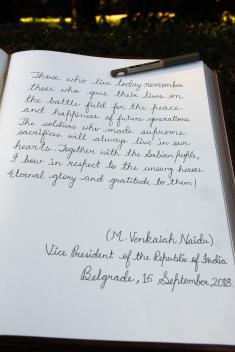 Those who live today remember
those who gave their lives on
the battle field for the peace
and happiness of future generations
The soldiers who made supreme
sacrifices will always live in our
hearts. Together with the Serbian people,
I bow in respect to the unsung heroes.
Eternal glory and gratitude to them!
(M. Venkaiah Naidu)
Vice President of the Republic of India
Belgrade, 16 September, 2018